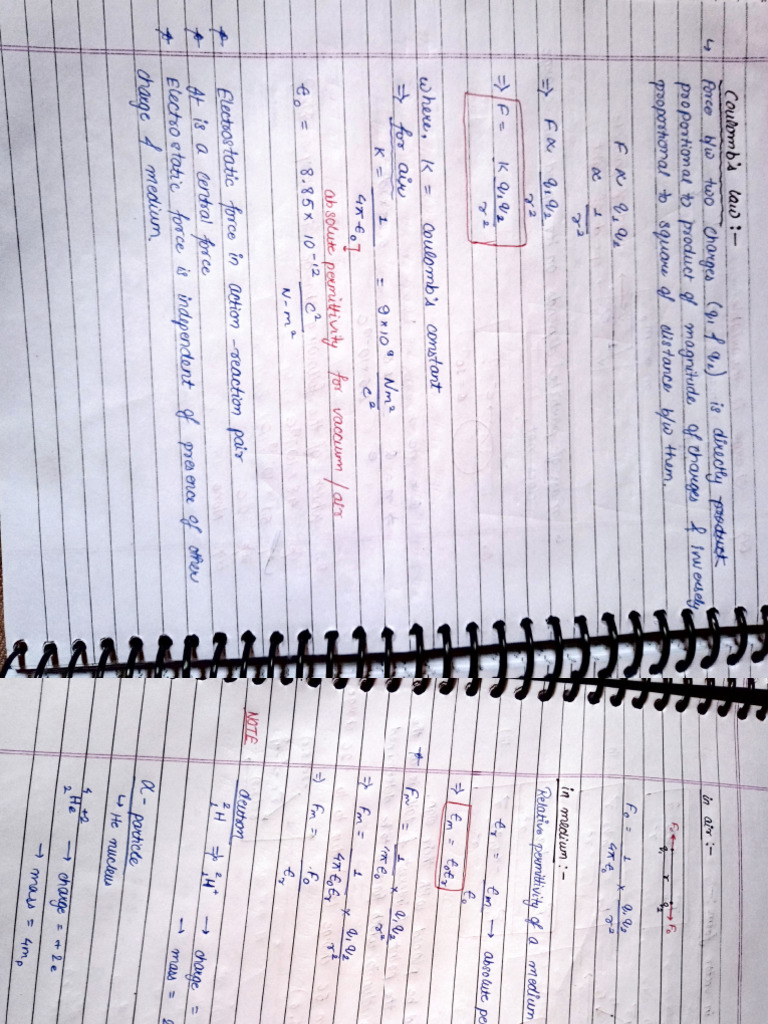 Coulomb's law :-
↳ Force b/w two charges (q₁ & q₂) is directly product
proportional to product of magnitude of charges & inversely
proportional to square of distance b/w them.
F ∝ q₁ q₂
∝ 1/r²
⇒ F ∝ q₁q₂/r²
⇒ F = K q₁q₂/r²
where, K = coulomb's constant
⇒ for air
K = 1/4π ε₀ = 9×10⁹ Nm²/C²
absolute permittivity for vaccum / air
ε₀ = 8.85 × 10⁻¹² C²/N-m²
* Electrostatic force in action-reaction pair
* It is a central force
* Electrostatic force is independent of presence of other
charge & medium.
in air :-
F₀ q₁ r q₂ F₀
F₀ = 1/4π ε₀ × q₁q₂/r²
in medium :-
Relative permittivity of a medium
εr = εm/ε₀ → absolute pe
⇒ εm = ε₀εr
* Fm = 1/4π ε₀ × q₁q₂/r²
⇒ Fm = 1/4π ε₀εr × q₁q₂/r²
⇒ Fm = F₀/εr
NOTE
deutron
²₁H ⇒ ²₁H⁺ → charge =
→ mass =
α - particle
↳ He nucleus
⁴₂He⁺² → charge = +2e
→ mass = 4mp